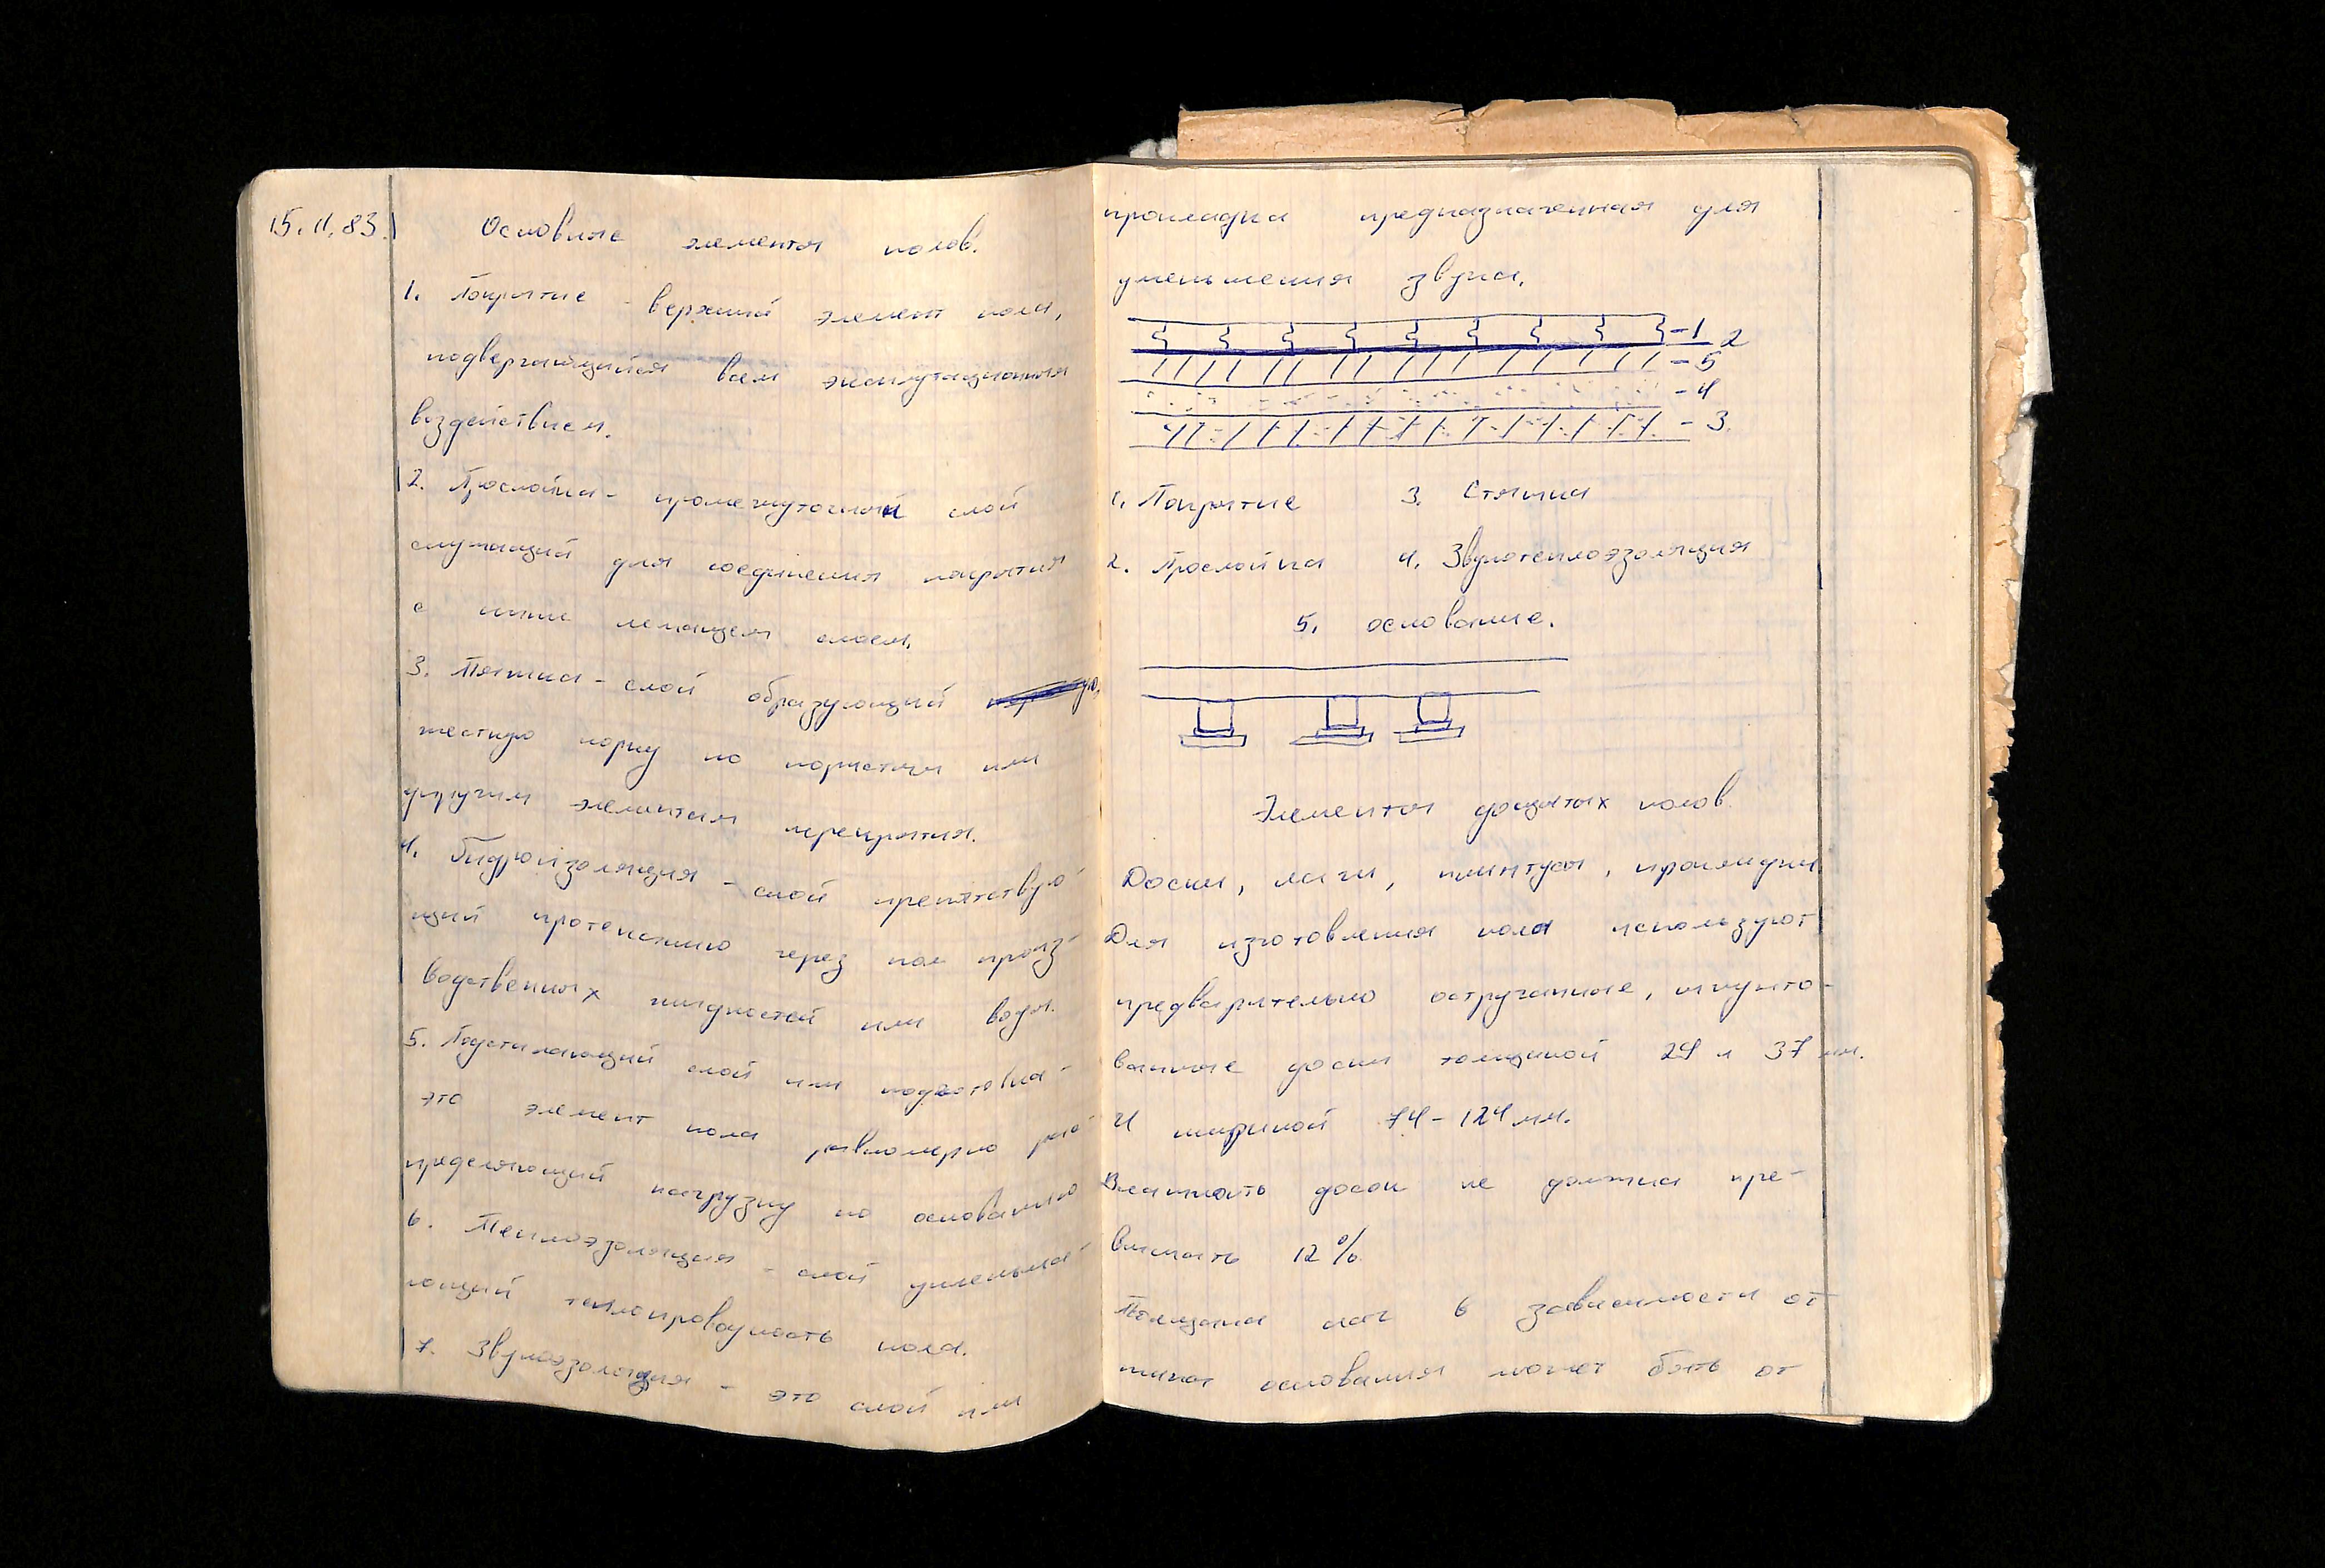 15.11.83. Основные элементы полов.
1. Покрытие - верхний элемент пола,
подвергающийся всем эксплутационным
воздействием.
2. Прослойка - промежуточный слой
служащий для соединения покрытия
с ниже лежащем слоем.
3. Стяжка - слой образующий
жесткую корку по пористым или
упругим элементам перекрытия.
4. Гидроизоляция - слой препятствую-
щий протеканию через пол произ-
водственных жидкостей или воды.
5. Подстилающий слой или подготовка -
это элемент пола равномерно рас-
пределяющий нагрузку по основанию
6. Теплоэзоляция - слой уменьша-
ющий теплопроводность пола.
7. Звукоэзоляция - это слой или
прокладка предназначенная для
уменьшения звука.
- 1 2
- 5
- 4
- 3.
1. Покрытие 3. Стяжка
2. Прослойка 4. Звукотеплоэзоляция
5. основание.
Элементы дощатых полов.
Доски, лаги, плинтусы, прокладки
Для изготовления пола используют
предварительно остроганные, шпунто-
ванные доски толщиной 29 и 37 мм.
И шириной 74 - 124 мм.
Влажность досок не должна пре-
вышать 12 %.
Толщина лаг в зависимости от
типа основания может быть от